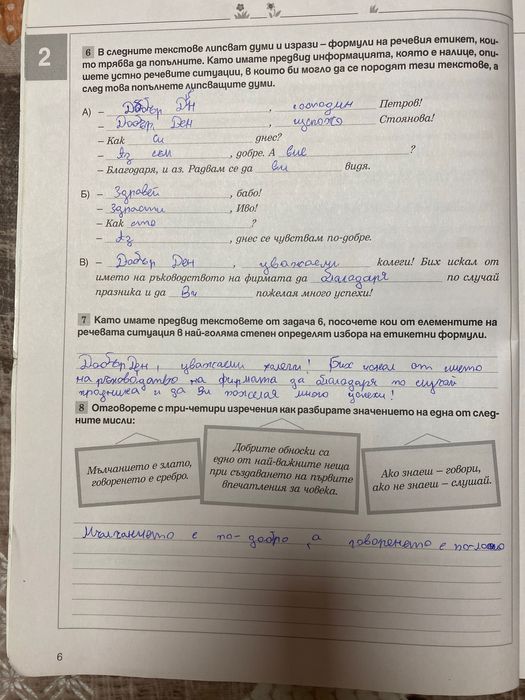 2
6 В следните текстове липсват думи и изрази – формули на речевия етикет, кои-
то трябва да попълните. Като имате предвид информацията, която е налице, опи-
шете устно речевите ситуации, в които би могло да се породят тези текстове, а
след това попълнете липсващите думи.
А) – Добър Дн , господин Петров!
– Добър Ден , Стоянова!
– Как си днес?
– Аз съм , добре. А вие ?
– Благодаря, и аз. Радвам се да ви видя.
Б) – Здравей , бабо!
– Здрасти , Иво!
– Как ?
– Аз , днес се чувствам по-добре.
В) – Добър Ден , уважаеми колеги! Бих искал от
името на ръководството на фирмата да благодаря по случай
празника и да Ви пожелая много успехи!
7 Като имате предвид текстовете от задача 6, посочете кои от елементите на
речевата ситуация в най-голяма степен определят избора на етикетни формули.
Добър Ден, уважаеми колеги! Бих искал от името
на ръководство на фирмата да благодаря по случай
празника и да Ви пожелая много успехи!
8 Отговорете с три-четири изречения как разбирате значението на една от след-
ните мисли:
Мълчанието е злато,
говоренето е сребро.
Добрите обноски са
едно от най-важните неща
при създаването на първите
впечатления за човека.
Ако знаеш – говори,
ако не знаеш – слушай.
Мълчанието е по-добро, а говоренето е по-лошо
6